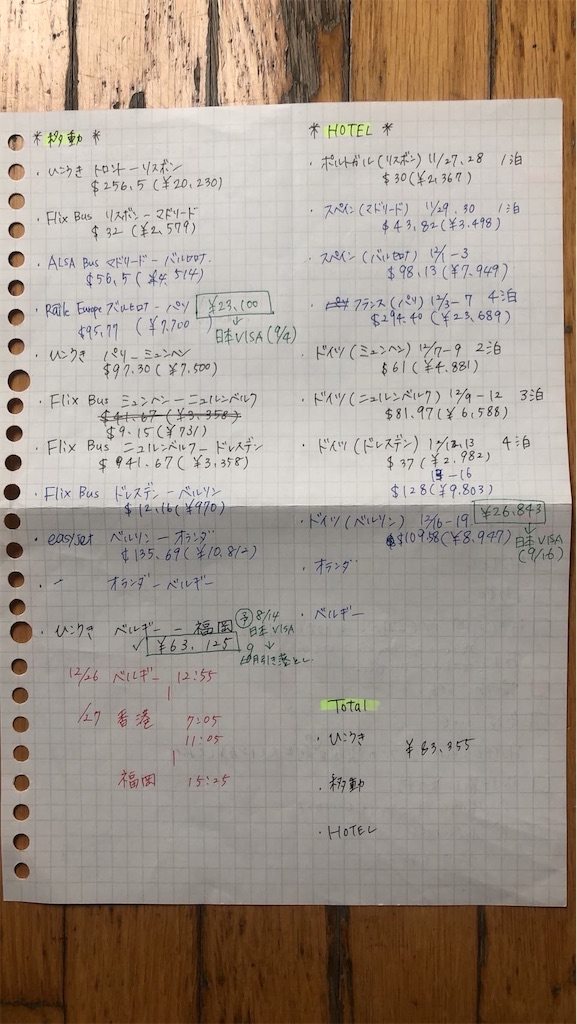 * 移動 *
・ひこうき トロント - リスボン
$256.5 (¥20,230)
・Flix Bus リスボン - マドリード
$32 (¥2,579)
・ALSA Bus マドリード - バルセロナ
$56.5 (¥4,514)
・Raile Europe バルセロナ - パリ ¥23,100
$95.77 (¥7,700) 日本VISA (9/4)
・ひこうき パリ - ミュンヘン
$97.30 (¥7,500)
・Flix Bus ミュンヘン - ニュルンベルク
$41.67 (¥3,358)
$9.15 (¥731)
・Flix Bus ニュルンベルク - ドレスデン
$41.67 (¥3,358)
・Flix Bus ドレスデン - ベルリン
$12.16 (¥970)
・easyjet ベルリン - オランダ
$135.69 (¥10,812)
・ - オランダ - ベルギー
・ひこうき ベルギー - 福岡 予 8/14
✓ ¥63,125 日本VISA
9月引き落とし
12/26 ベルギー 12:55
/27 香港 7:05
11:05
福岡 15:25
* HOTEL *
・ポルトガル (リスボン) 11/27,28 1泊
$30 (¥2,367)
・スペイン (マドリード) 11/29,30 1泊
$43,82 (¥3,498)
・スペイン (バルセロナ) 12/1-3
$98.13 (¥7,949)
・フランス (パリ) 12/3-7 4泊
$294.40 (¥23,689)
・ドイツ (ミュンヘン) 12/7-9 2泊
$61 (¥4,881)
・ドイツ (ニュルンベルク) 12/9-12 3泊
$81.97 (¥6,588)
・ドイツ (ドレスデン) 12/12,13 4泊
$37 (¥2,982)
13-16
$128 (¥9,803)
・ドイツ (ベルリン) 12/16-19 ¥26,843
$109.58 (¥8,947) 日本VISA
(9/16)
・オランダ
・ベルギー
Total
・ひこうき ¥83,355
・移動
・HOTEL